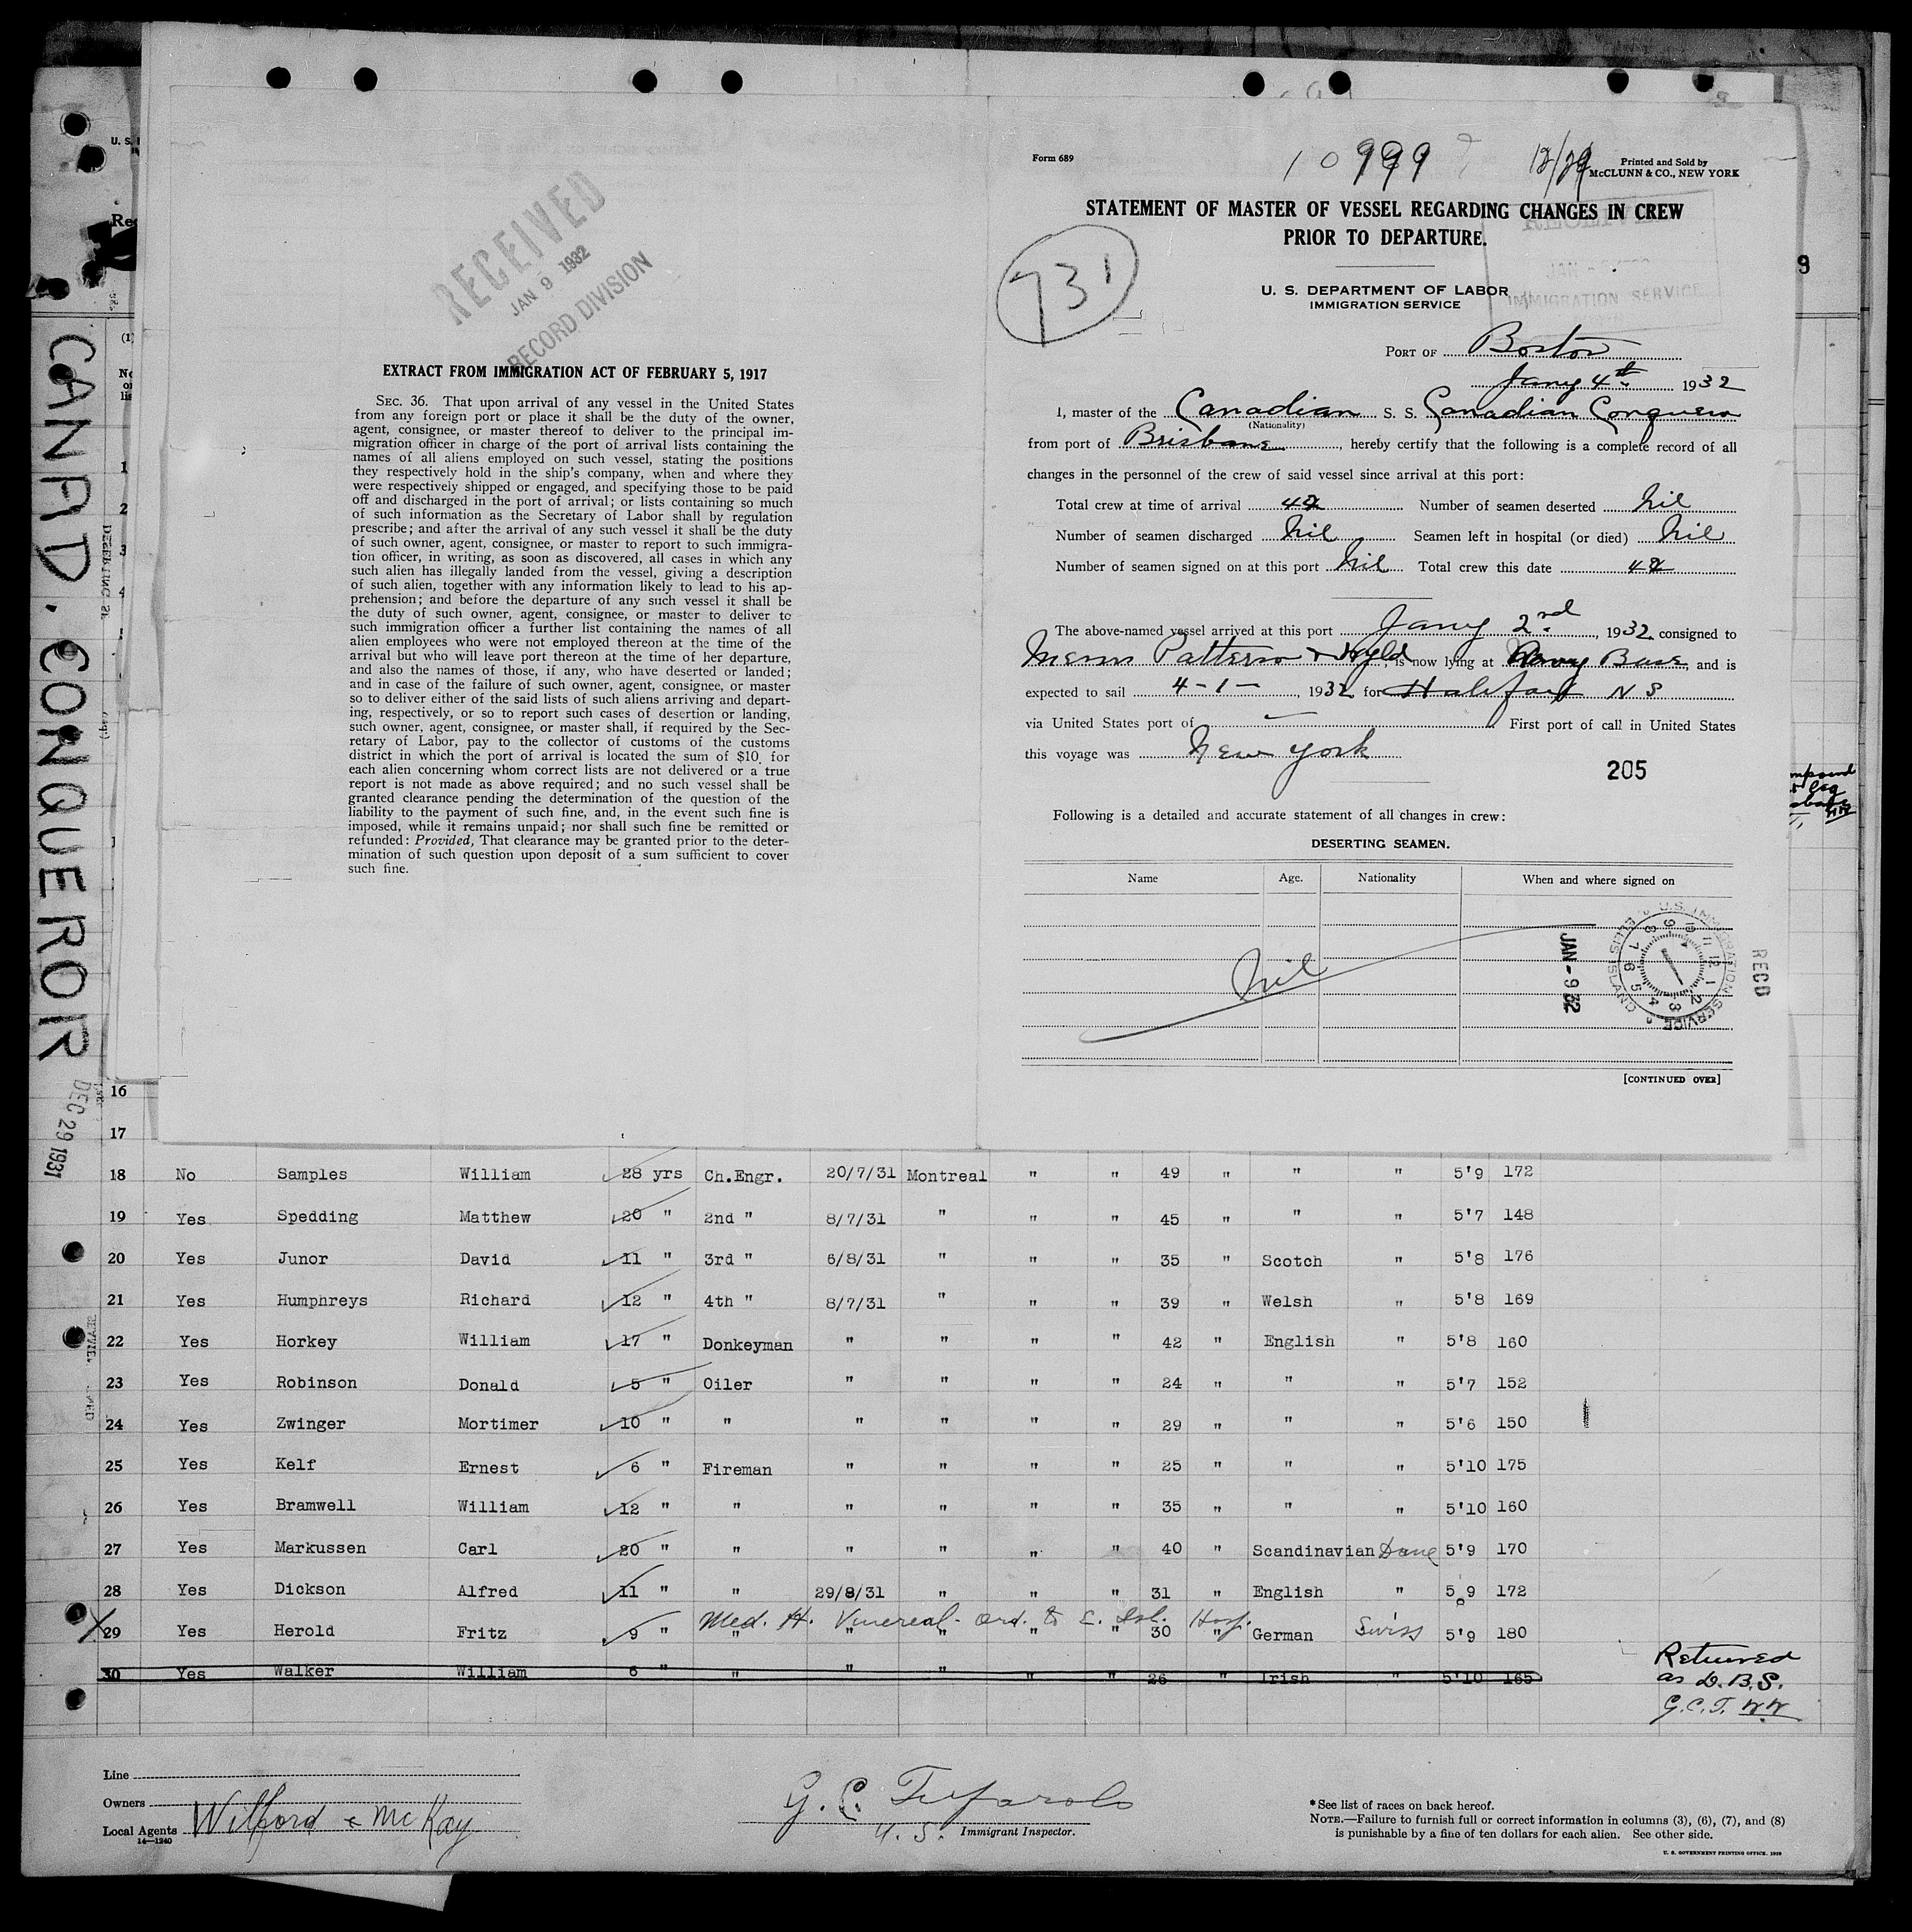 CANAD. CONQUEROR
DEC 29 1931
RECEIVED
JAN 9 1932
RECORD DIVISION
EXTRACT FROM IMMIGRATION ACT OF FEBRUARY 5, 1917
SEC. 36. That upon arrival of any vessel in the United States
from any foreign port or place it shall be the duty of the owner,
agent, consignee, or master thereof to deliver to the principal im-
migration officer in charge of the port of arrival lists containing the
names of all aliens employed on such vessel, stating the positions
they respectively hold in the ship's company, when and where they
were respectively shipped or engaged, and specifying those to be paid
off and discharged in the port of arrival; or lists containing so much
of such information as the Secretary of Labor shall by regulation
prescribe; and after the arrival of any such vessel it shall be the duty
of such owner, agent, consignee, or master to report to such immigra-
tion officer, in writing, as soon as discovered, all cases in which any
such alien has illegally landed from the vessel, giving a description
of such alien, together with any information likely to lead to his ap-
prehension; and before the departure of any such vessel it shall be
the duty of such owner, agent, consignee, or master to deliver to
such immigration officer a further list containing the names of all
alien employees who were not employed thereon at the time of the
arrival but who will leave port thereon at the time of her departure,
and also the names of those, if any, who have deserted or landed;
and in case of the failure of such owner, agent, consignee, or master
so to deliver either of the said lists of such aliens arriving and depart-
ing, respectively, or so to report such cases of desertion or landing,
such owner, agent, consignee, or master shall, if required by the Sec-
retary of Labor, pay to the collector of customs of the customs
district in which the port of arrival is located the sum of $10 for
each alien concerning whom correct lists are not delivered or a true
report is not made as above required; and no such vessel shall be
granted clearance pending the determination of the question of the
liability to the payment of such fine, and, in the event such fine is
imposed, while it remains unpaid; nor shall such fine be remitted or
refunded: Provided, That clearance may be granted prior to the deter-
mination of such question upon deposit of a sum sufficient to cover
such fine.
Form 689
10999
12/29
Printed and Sold by
McCLUNN & CO., NEW YORK
STATEMENT OF MASTER OF VESSEL REGARDING CHANGES IN CREW
PRIOR TO DEPARTURE.
731
U. S. DEPARTMENT OF LABOR
IMMIGRATION SERVICE
RECEIVED
IMMIGRATION SERVICE
PORT OF Boston
Jany 4th 1932
I, master of the Canadian S. S. Canadian Conqueror
(Nationality)
from port of Brisbane, hereby certify that the following is a complete record of all
changes in the personnel of the crew of said vessel since arrival at this port:
Total crew at time of arrival 42 Number of seamen deserted Nil
Number of seamen discharged Nil Seamen left in hospital (or died) Nil
Number of seamen signed on at this port Nil Total crew this date 42
The above-named vessel arrived at this port Jany 2nd, 1932 consigned to
Messrs Patterson & Wylde is now lying at Army Base, and is
expected to sail 4-1-, 1932 for Halifax N S
via United States port of — First port of call in United States
this voyage was New York
205
Following is a detailed and accurate statement of all changes in crew:
DESERTING SEAMEN.
Name Age. Nationality When and where signed on
Nil
JAN - 9 32
U. S. IMMIGRATION SERVICE ELLIS ISLAND
RECD
[CONTINUED OVER]
16
17
18 No Samples William 28 yrs Ch.Engr. 20/7/31 Montreal " " 49 " " " 5'9 172
19 Yes Spedding Matthew 20 " 2nd " 8/7/31 " " " 45 " " " 5'7 148
20 Yes Junor David 11 " 3rd " 6/8/31 " " " 35 " Scotch " 5'8 176
21 Yes Humphreys Richard 12 " 4th " 8/7/31 " " " 39 " Welsh " 5'8 169
22 Yes Horkey William 17 " Donkeyman " " " " 42 " English " 5'8 160
23 Yes Robinson Donald 5 " Oiler " " " " 24 " " " 5'7 152
24 Yes Zwinger Mortimer 10 " " " " " " 29 " " " 5'6 150
25 Yes Kelf Ernest 6 " Fireman " " " " 25 " " " 5'10 175
26 Yes Bramwell William 12 " " " " " " 35 " " " 5'10 160
27 Yes Markussen Carl 20 " " " " " " 40 " Scandinavian Dane 5'9 170
28 Yes Dickson Alfred 11 " " 29/8/31 " " " 31 " English " 5 9 172
Med. H. Venereal - ord. to E. Isl. Hosp.
X 29 Yes Herold Fritz 9 " " " " " " 30 " German Swiss 5'9 180
30 Yes Walker William 6 " " " " " " 26 " Irish " 5'10 165
Returned
as D.B.S.
G.C.T.
Line
Owners
Local Agents Wilford & McKay
14—1240
G. C.
U. S. Immigrant Inspector.
* See list of races on back hereof.
NOTE.—Failure to furnish full or correct information in columns (3), (6), (7), and (8)
is punishable by a fine of ten dollars for each alien. See other side.
U. S. GOVERNMENT PRINTING OFFICE. 1929